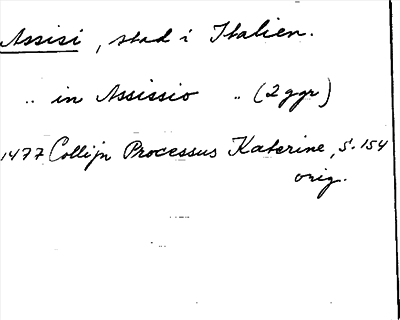 Assisi, stad i Italien.
.. in Assissio .. (2 ggr)
1477 Collijn Processus Katerine, s. 154
orig.